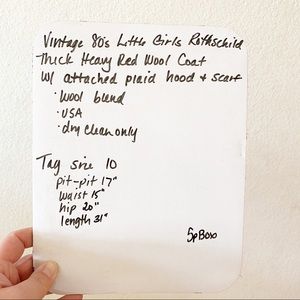 Vintage 80's Little Girls Rothschild
Thick Heavy Red Wool Coat
w/ attached plaid hood + scarf
· Wool blend
· USA
· dry clean only
Tag size 10
pit-pit 17"
waist 15"
hip 20"
length 31"